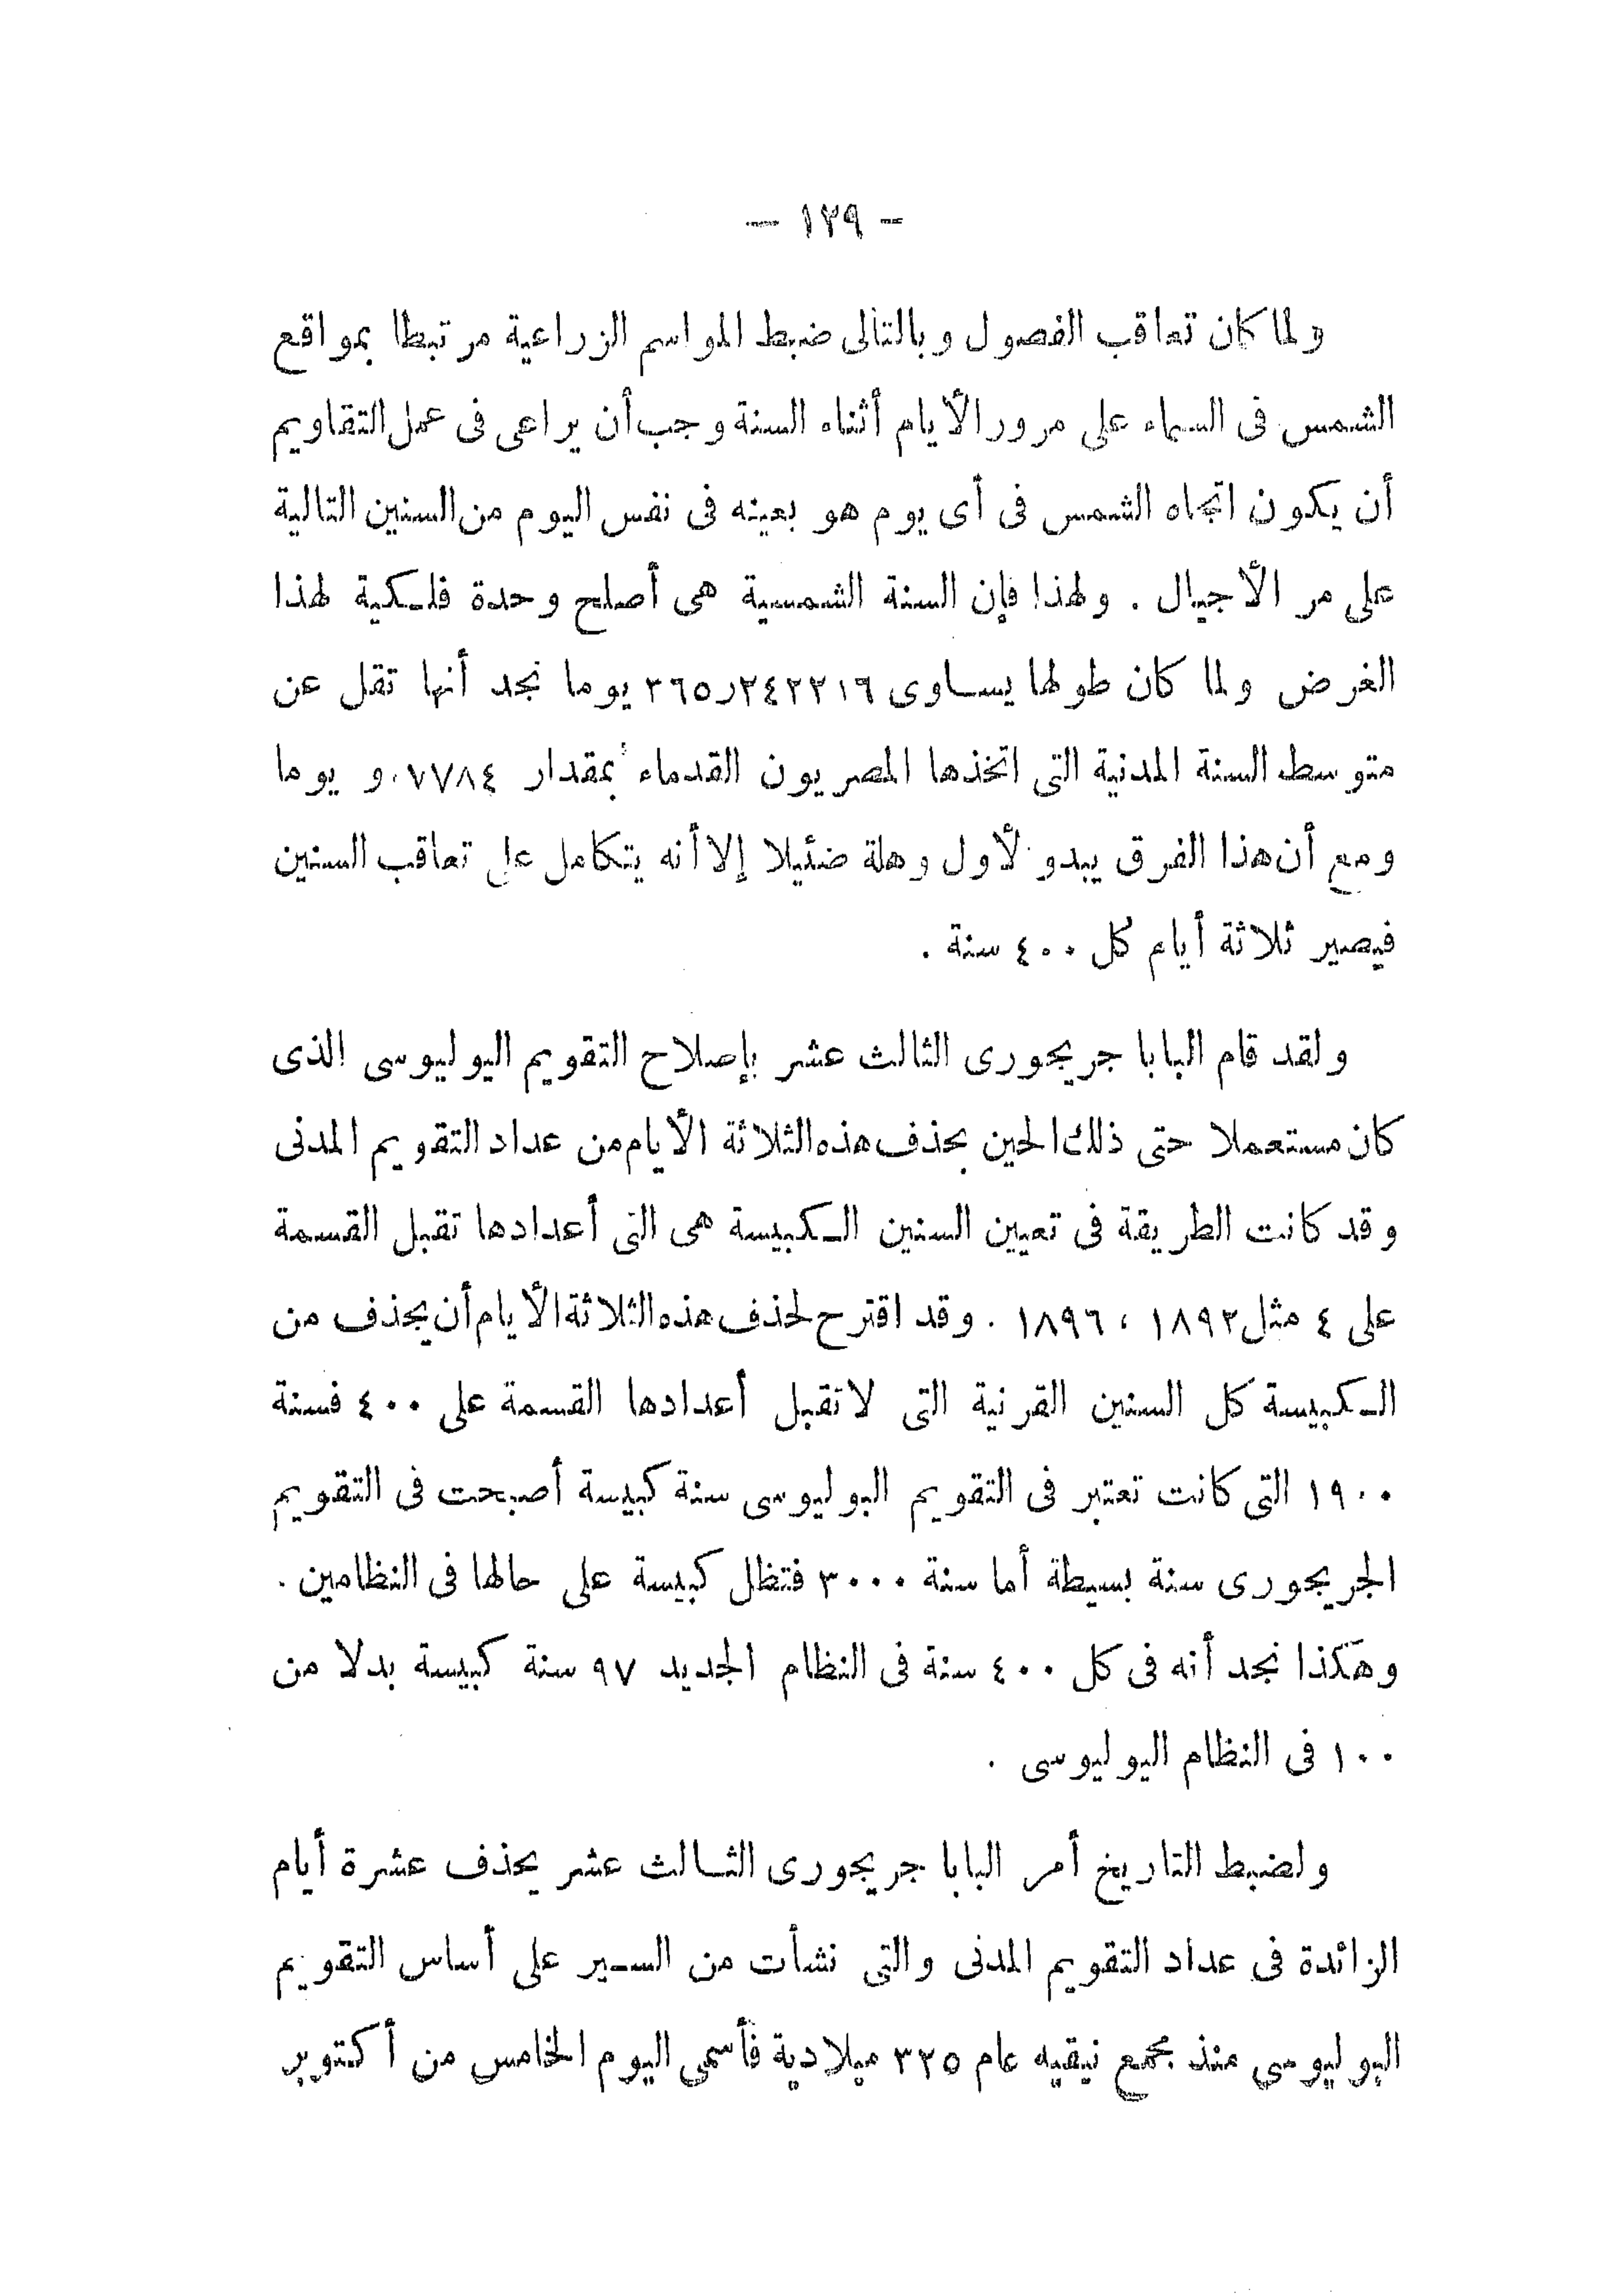 — ١٢٩ —
ولما كان تعاقب الفصول وبالتالى ضبط المواسم الزراعية مرتبطا بمواقع
الشمس فى السماء على مرور الأيام أثناء السنة وجب أن يراعى فى عمل التقاويم
أن يكون اتجاه الشمس فى أى يوم هو بعينه فى نفس اليوم من السنين التالية
على مر الأجيال . ولهذا فإن السنة الشمسية هى أصلح وحدة فلكية لهذا
الغرض ولما كان طولها يساوى ٣٦٥ر٢٤٢٢١٦ يوما نجد أنها تقل عن
متوسط السنة المدنية التى اتخذها المصريون القدماء بمقدار ٠٠٧٧٨٤و يوما
ومع أن هذا الفرق يبدو لأول وهلة ضئيلا إلا أنه يتكامل على تعاقب السنين
فيصير ثلاثة أيام كل ٤٠٠ سنة .
ولقد قام البابا جريجورى الثالث عشر بإصلاح التقويم اليوليوسى الذى
كان مستعملا حتى ذلك الحين بحذف هذه الثلاثة الأيام من عداد التقويم المدنى
وقد كانت الطريقة فى تعيين السنين الكبيسة هى التى أعدادها تقبل القسمة
على ٤ مثل ١٨٩٢ ، ١٨٩٦ . وقد اقترح لحذف هذه الثلاثة الأيام أن يحذف من
الكبيسة كل السنين القرنية التى لا تقبل أعدادها القسمة على ٤٠٠ فسنة
١٩٠٠ التى كانت تعتبر فى التقويم اليوليوسى سنة كبيسة أصبحت فى التقويم
الجريجورى سنة بسيطة أما سنة ٣٠٠٠ فتظل كبيسة على حالها فى النظامين .
وهكذا نجد أنه فى كل ٤٠٠ سنة فى النظام الجديد ٩٧ سنة كبيسة بدلا من
١٠٠ فى النظام اليوليوسى .
ولضبط التاريخ أمر البابا جريجورى الثالث عشر بحذف عشرة أيام
الزائدة فى عداد التقويم المدنى والتى نشأت من السير على أساس التقويم
اليوليوسى منذ مجمع نيقيه عام ٣٢٥ ميلادية فأسمى اليوم الخامس من أكتوبر